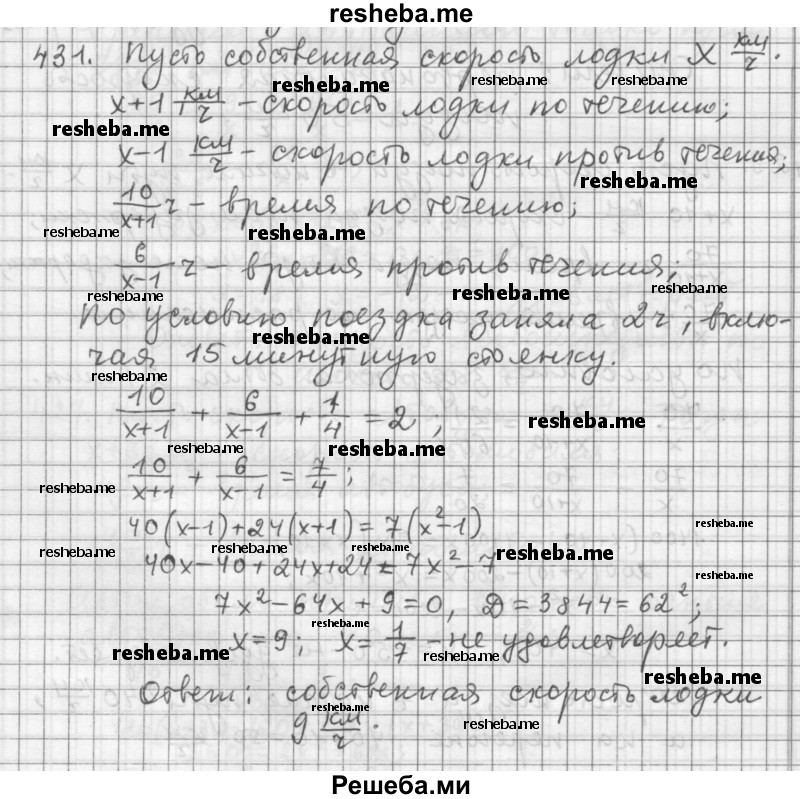 resheba.me
431. Пусть собственная скорость лодки X км/ч.
resheba.me resheba.me resheba.me
x+1 км/ч – скорость лодки по течению;
resheba.me
x–1 км/ч – скорость лодки против течения;
resheba.me
10/(x+1) ч – время по течению;
resheba.me resheba.me
6/(x–1) ч – время против течения;
resheba.me resheba.me resheba.me
По условию поездка заняла 2ч, вклю-
resheba.me
чая 15 минутную стоянку.
resheba.me
10/(x+1) + 6/(x–1) + 1/4 = 2;
resheba.me
resheba.me resheba.me
10/(x+1) + 6/(x–1) = 7/4;
resheba.me
40(x–1)+24(x+1)=7(x²–1)
resheba.me
resheba.me resheba.me resheba.me resheba.me
40x–40+24x+24=7x²–7
resheba.me
7x²–64x+9=0, D=3844=62²;
resheba.me
x=9; x=1/7 – не удовлетворяет.
resheba.me resheba.me
resheba.me
Ответ: собственная скорость лодки
resheba.me
9 км/ч.
resheba.me
Решеба.ми